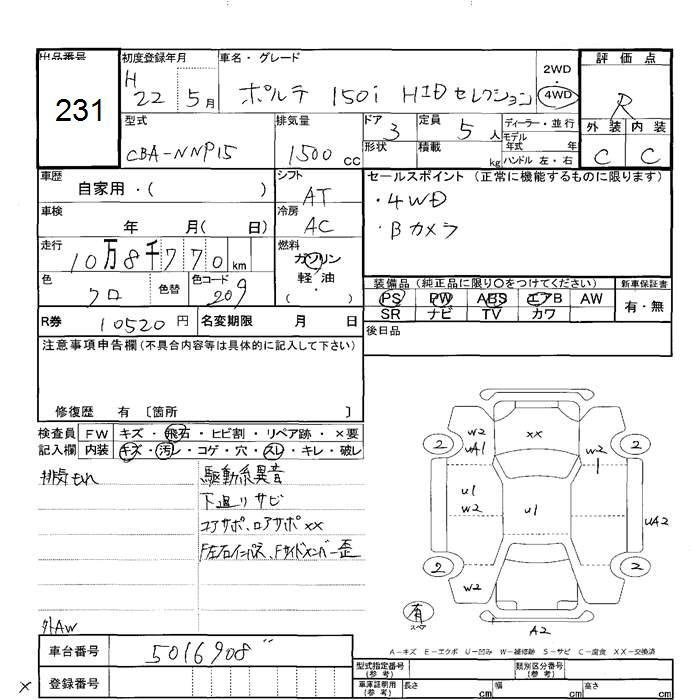 出品番号 初度登録年月 車名・グレード 評価点
231
H
22 5月 ポルテ 150i HIDセレクション 2WD・4WD R
型式 排気量 ドア 定員 ディーラー・並行 外装 内装
CBA-NNP15 1500cc 3 5人 モデル 年式 年 C C
形状 積載 kg ハンドル 左・右
車歴 シフト セールスポイント (正常に機能するものに限ります)
自家用・( ) AT ・4WD
車検 冷房 ・Bカメラ
年 月( 日) AC
走行 燃料
10万8千770km ガソリン
軽・油
・( )
色 色替 色コード 装備品 (純正品に限り○をつけてください) 新車保証書
クロ 209 PS PW ABS エアB AW 有・無
SR ナビ TV カワ
R券 10520円 名変期限 月 日 後日品
注意事項申告欄 (不具合内容等は具体的に記入して下さい)
修復歴 有 〔箇所 〕
検査員 FW キズ・飛石・ヒビ割・リペア跡・×要
記入欄 内装 キズ・汚レ・コゲ・穴・スレ・キレ・破レ
排気もれ 駆動系異音
下廻りサビ
コアサポ、ロアサポ××
F左右インパネ、Fサイドメンバー歪
外AW
W2 ×× W2
UA1 1
2 2
U1 U1
W2 UA2
2 2
W2
有 スペア A2
A-キズ E-エクボ U-凹み W-補修跡 S-サビ C-腐食 XX-交換済
車台番号 5016908
登録番号
×
型式指定番号 (参考) 類別区分番号 (参考)
車庫証明用 (参考) 長さ cm 幅 cm 高さ cm